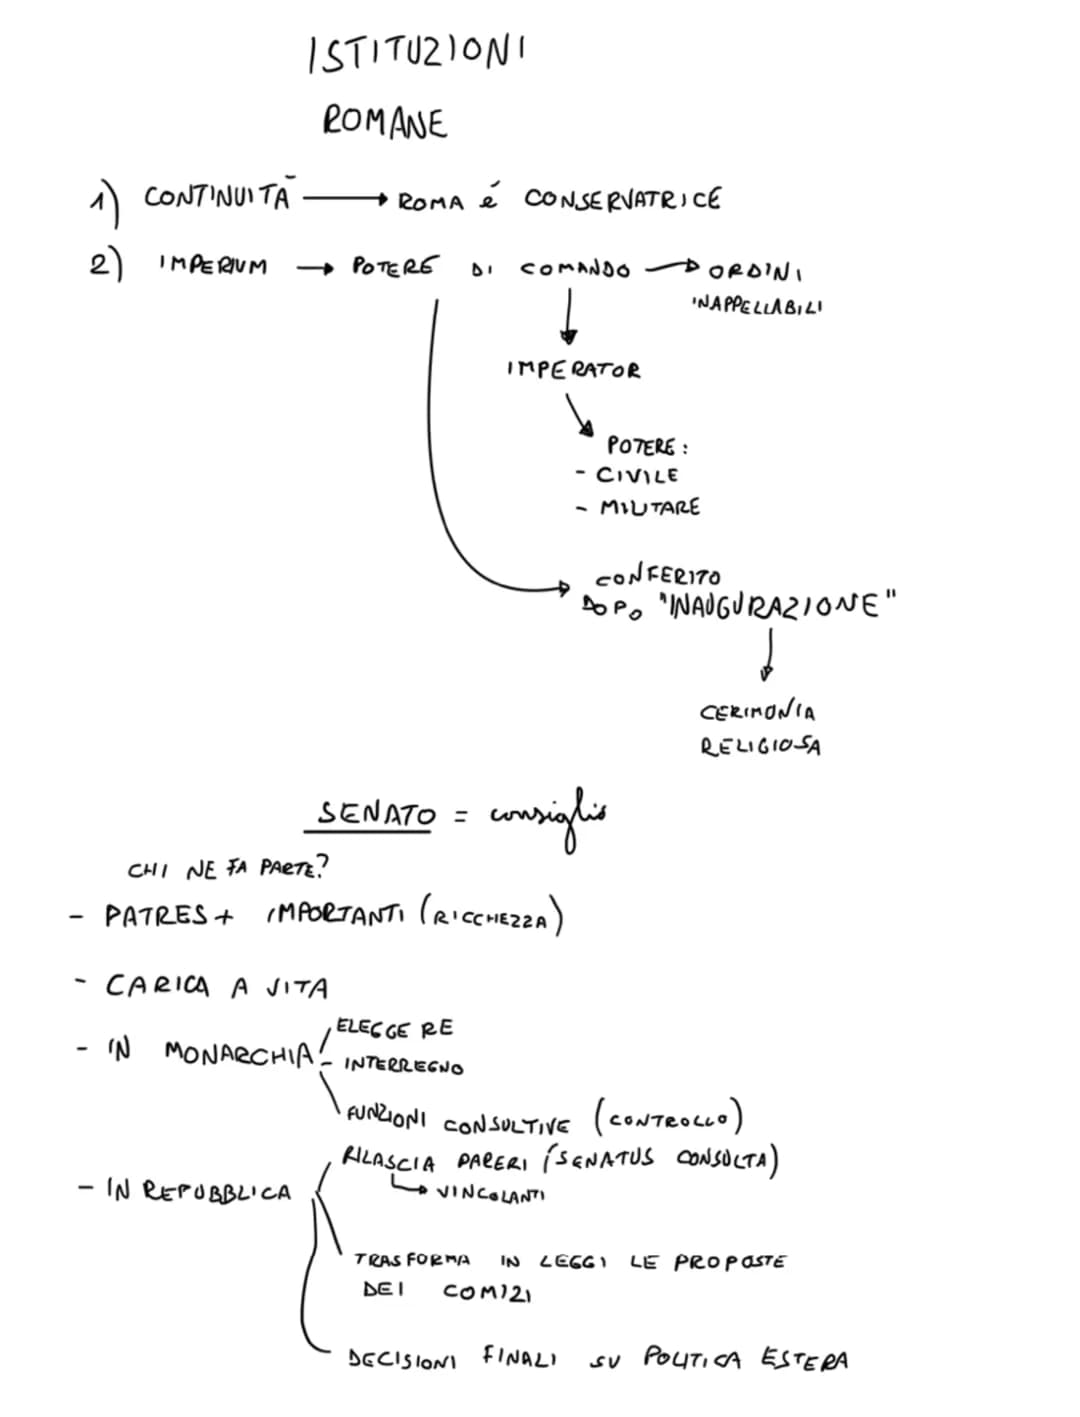 ISTITUZIONI
ROMANE
1) CONTINUITÀ → ROMA é CONSERVATRICE
2) IMPERIUM → POTERE DI COMANDO → ORDINI
INAPPELLABILI
IMPERATOR
POTERE:
- CIVILE
- MILITARE
CONFERITO
DOPO "INAUGURAZIONE"
CERIMONIA
RELIGIOSA
SENATO = consiglio
CHI NE FA PARTE?
- PATRES + IMPORTANTI (RICCHEZZA)
- CARICA A VITA
ELEGGE RE
- IN MONARCHIA - INTERREGNO
FUNZIONI CONSULTIVE (CONTROLLO)
RILASCIA PARERI (SENATUS CONSULTA)
- IN REPUBBLICA → VINCOLANTI
TRASFORMA IN LEGGI LE PROPOSTE
DEI COMIZI
DECISIONI FINALI SU POLITICA ESTERA